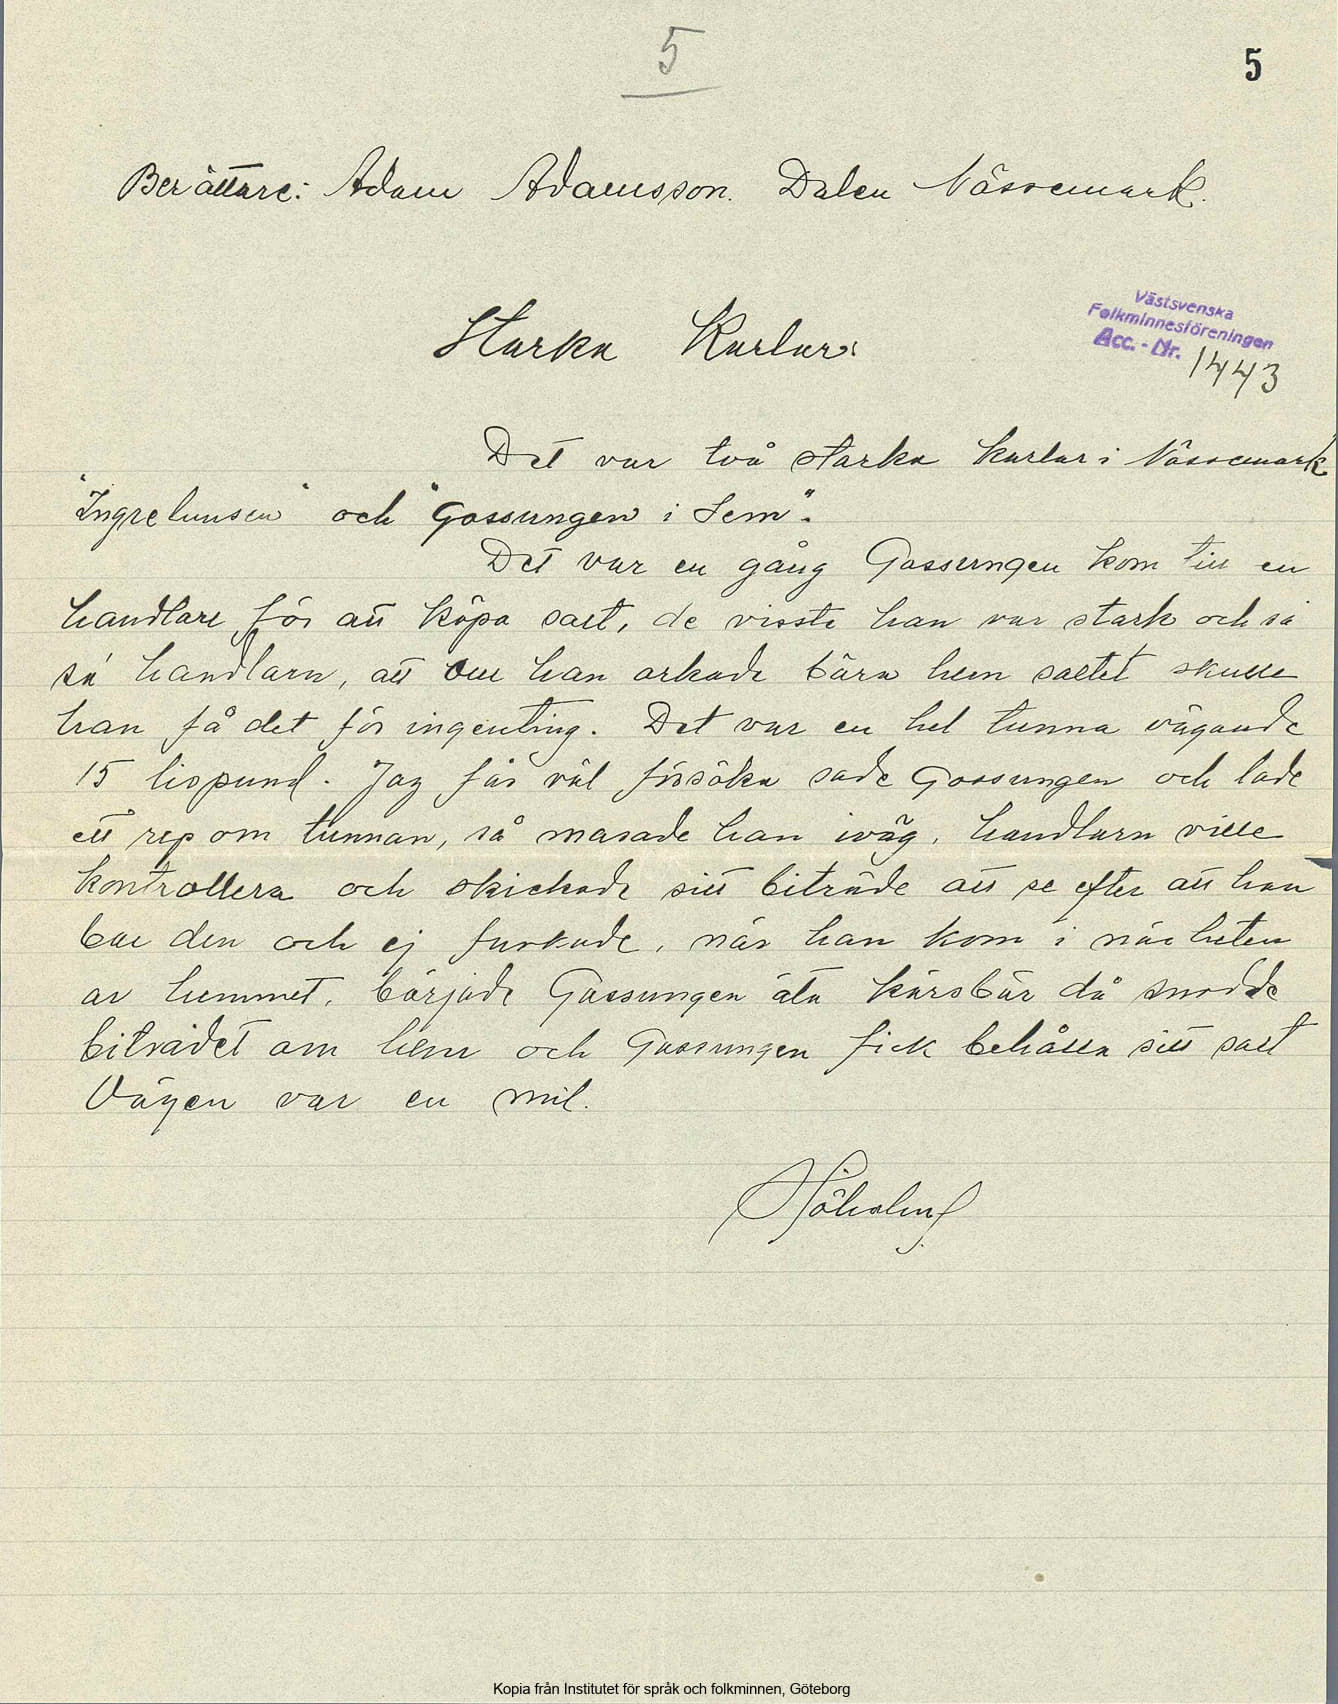 5
5
Berättare: Adam Adamsson. Dalen Nössemark.
Västsvenska
Folkminnesföreningen
Acc. - Nr. 1443
Starka Karlar:
Det var två starka karlar i Nössemark
och "Gossungen i Sem".
Det var en gång Gossungen kom till en
handlare för att köpa salt, de visste han var stark och så
sa handlarn, att om han orkade bära hem saltet skulle
han få det för ingenting. Det var en hel tunna vägande
15 lispund. Jag får väl försöka sade Gossungen och lade
ett rep om tunnan, så masade han iväg, handlarn ville
kontrollera och skickade sitt biträde att se efter att han
bar den och ej fuskade, när han kom i närheten
av hemmet, började Gossungen äta körsbär då snodde
biträdet om hem och Gossungen fick behålla sitt salt
Vägen var en mil.
Kopia från Institutet för språk och folkminnen, Göteborg